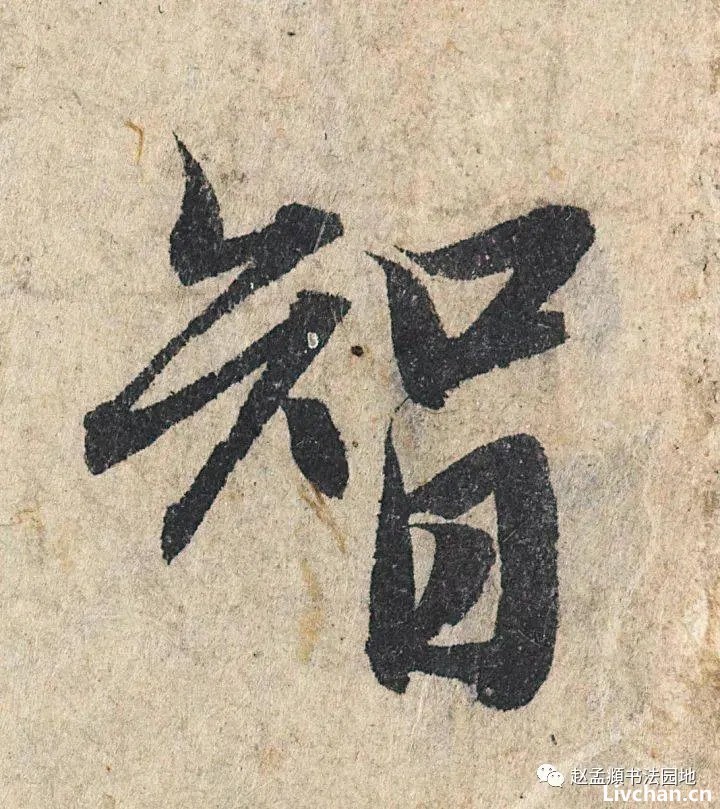 智
赵孟頫书法园地
Livchan.cn